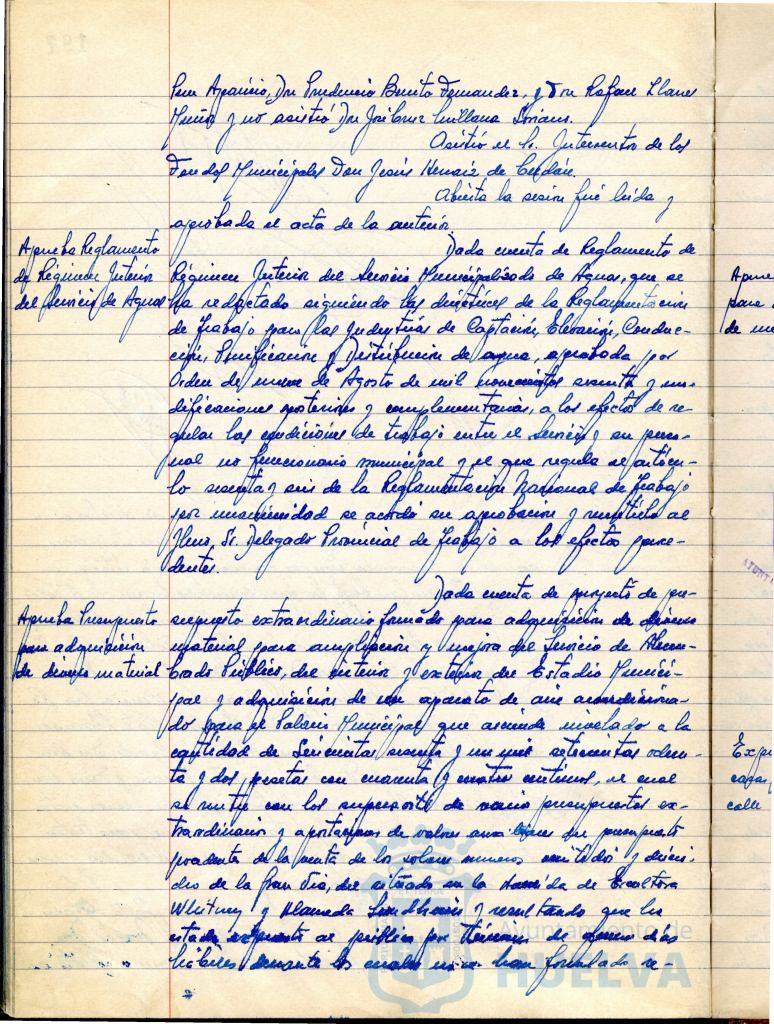 Aparicio, Don Prudencio Benito Fernandez, y Don Rafael Llanes
Muñoz y no asistió Don José Cruz Quillana Soriano.
Asistió el Sr. Interventor de los
Fondos Municipales Don Jesús de
Abierta la sesión fué leida y
aprobada el acta de la anterior.
Aprueba Reglamento
de Régimen Interior
del Servicio de Aguas
Dada cuenta de Reglamento de
Régimen Interior del Servicio Municipalizado de Aguas, que se
ha redactado siguiendo las directrices de la Reglamentacion
de Trabajo para las Industrias de Captación, Elevación, Conduc-
ción, Purificacion y Distribucion de agua, aprobada por
Orden de nueve de Agosto de mil novecientos sesenta y mo-
dificaciones posteriores y complementarias, a los efectos de re-
gular las condiciones de trabajo entre el Servicio y su perso-
nal no funcionario municipal y el que regula el artícu-
lo sesenta y seis de la Reglamentación Nacional de Trabajo
por unanimidad se acordó su aprobacion y remitirlo al
Ilmo. Sr. Delegado Provincial de Trabajo a los efectos proce-
dentes.
Aprueba Presupuesto
para adquisición
de diverso material
Dada cuenta de proyecto de pre-
supuesto extraordinario formado para adquisición de diverso
material para ampliación y mejora del Servicio de Alum-
brado Público, del interior y exterior del Estadio Munici-
pal y adquisición de un aparato de aire acondiciona-
do para el Palacio Municipal que asciende nivelado a la
cantidad de Seiscientas sesenta y un mil setecientas ochen-
ta y dos pesetas con cuarenta y cuatro centimos, el cual
se nutre con los superavits de varios presupuestos ex-
traordinarios y aportaciones de valores auxiliares del presupuesto
procedentes de la venta de los solares numeros veintidos y dieci-
de la Gran Via, del situado en la Avenida de Escultora
Whitney y Alameda Sundheim y resultando que ha
estado expuesto al público por término de quince días
hábiles durante los cuales no se han formulado re-
Ayuntamiento de
HUELVA
para
Expe
calle